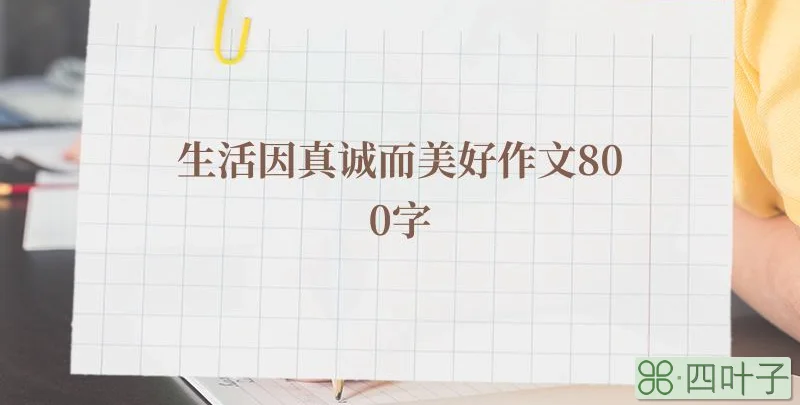 生活因真诚而美好作文80
0字
四叶子